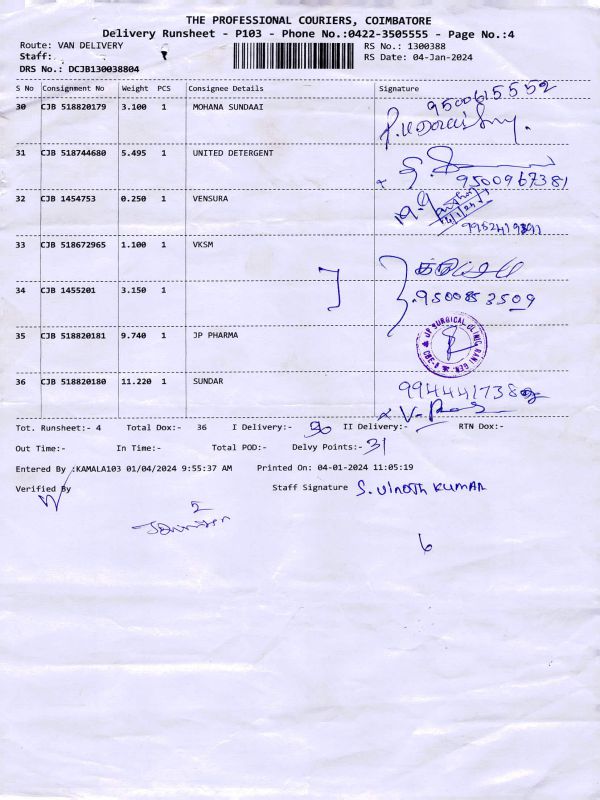 THE PROFESSIONAL COURIERS, COIMBATORE
Delivery Runsheet - P103 - Phone No.:0422-3505555 - Page No.:4
Route: VAN DELIVERY
RS No.: 1300388
Staff:
RS Date: 04-Jan-2024
DRS No.: DCJB130038804
S No Consignment No Weight PCS Consignee Details Signature
9500615552
30 CJB 518820179 3.100 1 MOHANA SUNDAAI
31 CJB 518744680 5.495 1 UNITED DETERGENT
9500967381
32 CJB 1454753 0.250 1 VENSURA
33 CJB 518672965 1.100 1 VKSM
34 CJB 1455201 3.150 1 9500853509
35 CJB 518820181 9.740 1 JP PHARMA
JP SURGICAL CLINIC
36 CJB 518820180 11.220 1 SUNDAR
Tot. Runsheet:- 4 Total Dox:- 36 I Delivery:- II Delivery:- RTN Dox:-
Out Time:- In Time:- Total POD:- Delvy Points:- 31
Entered By :KAMALA103 01/04/2024 9:55:37 AM Printed On: 04-01-2024 11:05:19
Verified By Staff Signature S. VINOTH KUMAR
2
6